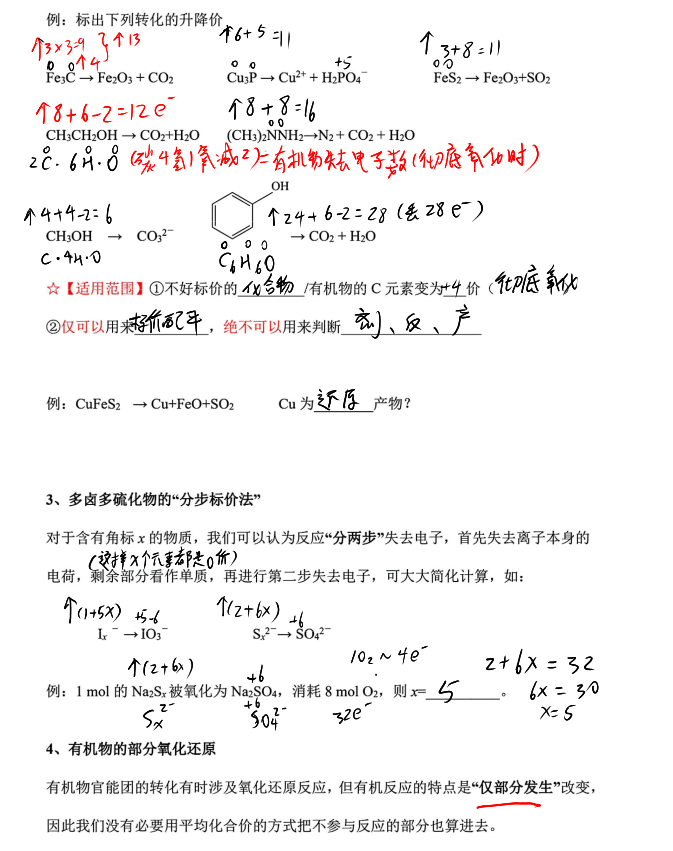 例：标出下列转化的升降价
↑3×3=9 } ↑13 ↑6+5=11 ↑3+8=11
0 0 ↑4 0 0 +5 0 0
Fe3C → Fe2O3 + CO2 Cu3P → Cu²⁺ + H2PO4⁻ FeS2 → Fe2O3+SO2
↑8+6-2=12e⁻ ↑8+8=16
0 0
CH3CH2OH → CO2+H2O (CH3)2NNH2→N2 + CO2 + H2O
0 0 0
2C· 6H·O (碳4氢1氧减2)=有机物失去电子数(彻底氧化时)
OH
↑4+4-2=6 ↑24+6-2=28 (丢28e⁻)
CH3OH → CO3²⁻ → CO2 + H2O
C·4H·O 0 0 0
C6H6O
☆【适用范围】①不好标价的 化合物 /有机物的 C 元素变为 +4 价（彻底氧化
②仅可以用来 标价配平 ，绝不可以用来判断 剂、反、产
例：CuFeS2 → Cu+FeO+SO2 Cu 为 还原 产物？
3、多卤多硫化物的“分步标价法”
对于含有角标 x 的物质，我们可以认为反应“分两步”失去电子，首先失去离子本身的
(这样X个元素都是0价)
电荷，剩余部分看作单质，再进行第二步失去电子，可大大简化计算，如：
↑(1+5x) +5-6 ↑(2+6x) +6
Ix⁻ → IO3⁻ Sx²⁻ → SO4²⁻
↑(2+6x) +6 1O2~4e⁻ 2+6x=32
例：1 mol 的 Na2Sx 被氧化为 Na2SO4，消耗 8 mol O2，则 x= 5 。 6x=30
+6
Sx²⁻ SO4²⁻ 32e⁻ x=5
4、有机物的部分氧化还原
有机物官能团的转化有时涉及氧化还原反应，但有机反应的特点是“仅部分发生”改变，
因此我们没有必要用平均化合价的方式把不参与反应的部分也算进去。